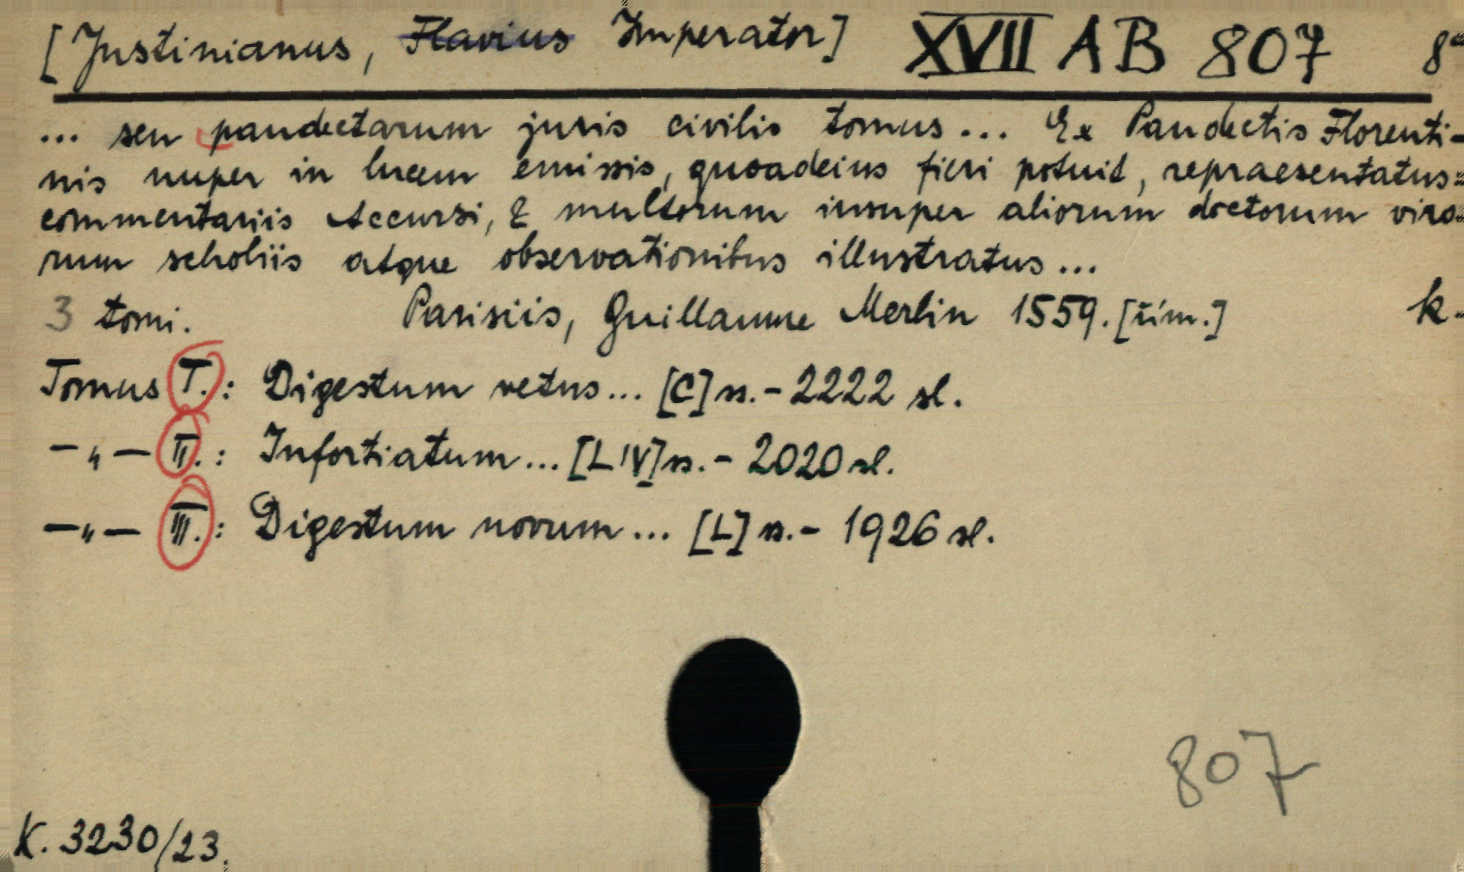 [Justinianus, Flavius Imperator] XVII AB 807 8°
... seu pandectarum juris civilis tomus... Ex Pandectis Florenti-
nis nuper in lucem emissis, quoadeius fieri potuit, repraesentatus:
commentariis Accursi, & multorum insuper aliorum doctorum viro-
rum scholiis atque observationibus illustratus...
3 tomi. Parisiis, Guillaume Merlin 1559. [řím.] k.
Tomus I.: Digestum vetus... [C] s.-2222 sl.
-„- II.: Infortiatum... [LIV] s.-2020 sl.
-„- III.: Digestum novum... [L] s.- 1926 sl.
807
K. 3230/23.